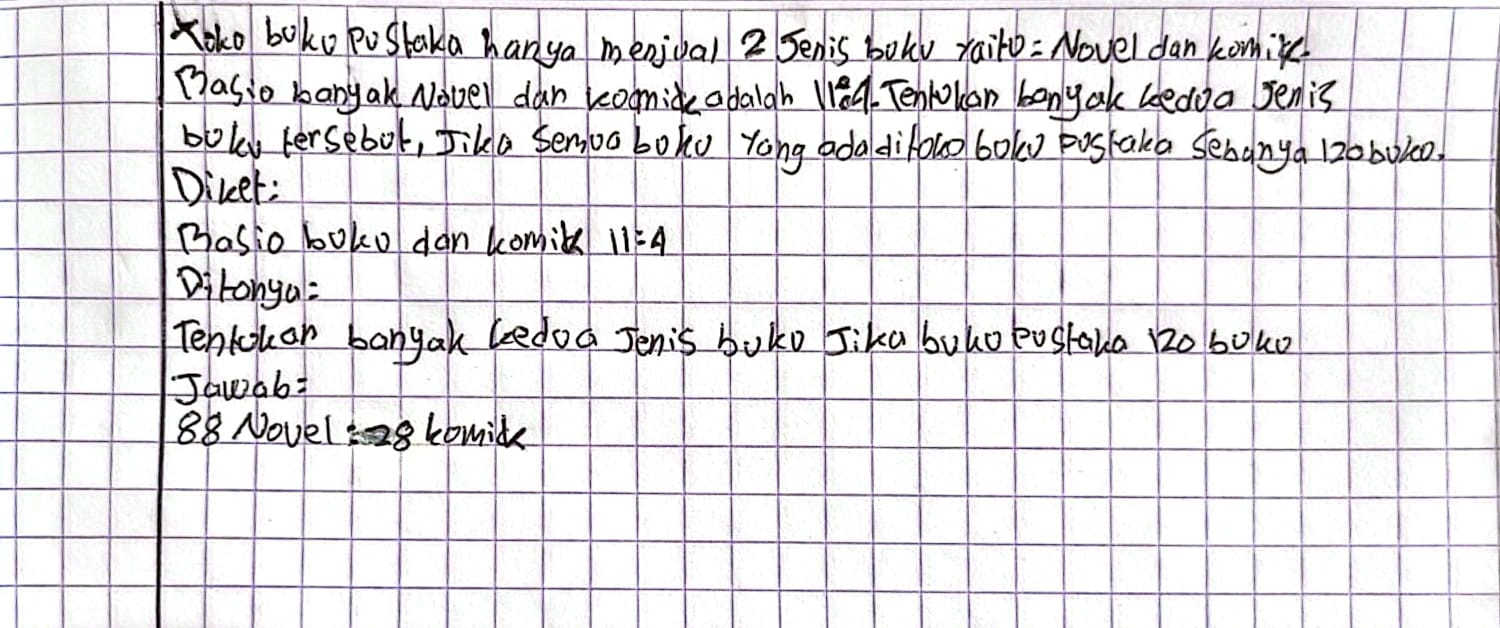 Toko buku Pustaka hanya menjual 2 Jenis buku yaitu = Novel dan komik.
Rasio banyak Novel dan komik adalah 11:4. Tentukan banyak kedua Jenis
buku tersebut, Jika Semua buku Yang ada ditoko buku pustaka Sebanya 120 buku.
Diket:
Rasio buku dan komik 11:4
Ditanya:
Tentukan banyak kedua Jenis buku Jika buku Pustaka 120 buku
Jawab=
88 Novel : 28 komik